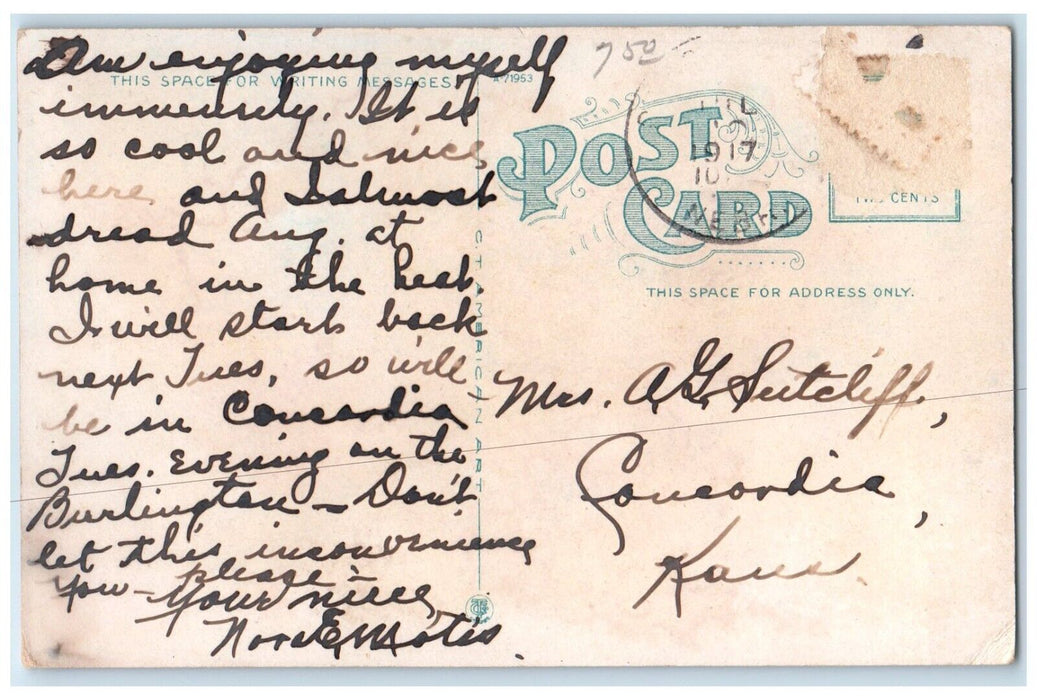 Am enjoying myself
immensely. It is
so cool and nice
here and I almost
dread Aug. at
home in the heat.
I will start back
next Tues, so will
be in Concordia
Tues. evening on the
Burlington – Don't
let this inconvenience
you – please –
Your niece
Nora E
THIS SPACE FOR WRITING MESSAGES
A 71953
750
POST CARD
1917
NEBR.
TWO CENTS
THIS SPACE FOR ADDRESS ONLY.
C.T. AMERICAN ART
Mrs. A.G. Sutcliff,
Concordia,
Kans.